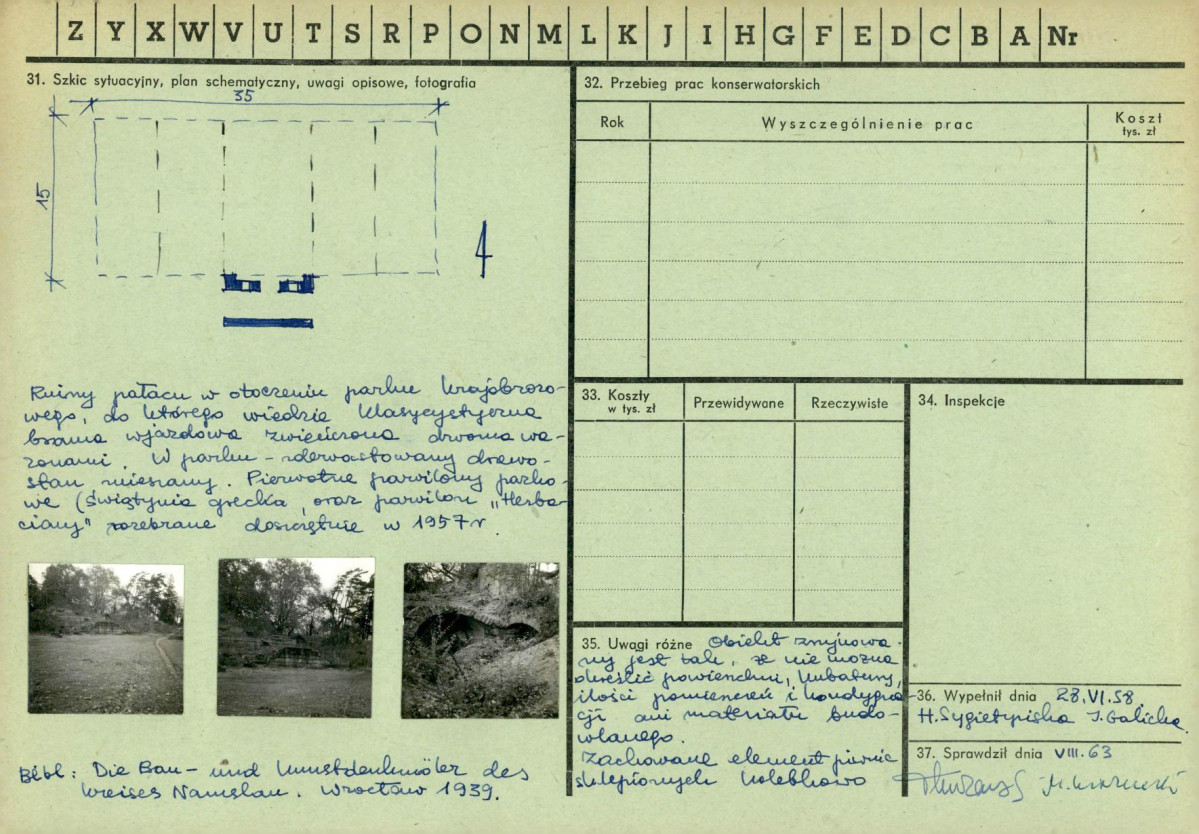 Z Y X W V U T S R P O N M L K J I H G F E D C B A Nr
31. Szkic sytuacyjny, plan schematyczny, uwagi opisowe, fotografia
35
15
Ruiny pałacu w otoczeniu parku krajobrazo-
wego, do którego wiedzie klasycystyczna
brama wjazdowa zwieńczona dwoma wa-
zonami. W parku - zdewastowany drzewo-
stan mieszany. Pierwotne pawilony parko-
we (świątynia grecka, oraz pawilon "Herba-
ciany" rozebrane doszczętnie w 1957 r.
Bibl: Die Bau- und Kunstdenkmäler des
Kreises Namslau. Wrocław 1939.
32. Przebieg prac konserwatorskich
Rok
Wyszczególnienie prac
Koszt
tys. zł
33. Koszty
w tys. zł
Przewidywane
Rzeczywiste
34. Inspekcje
35. Uwagi różne Obiekt zrujnowa-
ny jest tak, że nie można
określić powierzchni, kubatury,
ilości pomieszczeń i kondygna
cji ani materiału budo-
wlanego.
Zachowane element piwnic
sklepionych kolebkowo
36. Wypełnił dnia 28.VI.58
H. Sygietyńska J. Galicka
37. Sprawdził dnia VIII.63